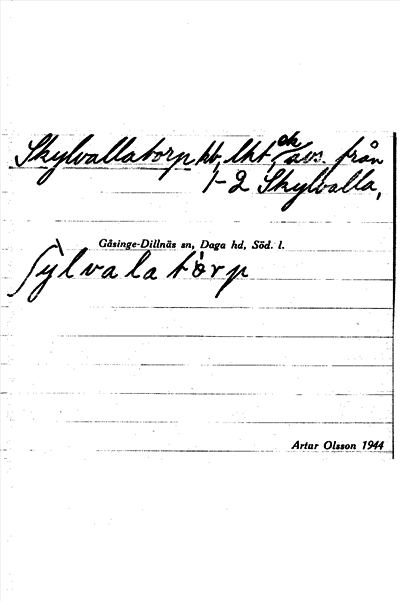 Skylvallatorp hb, lht, ek avs. från
1-2 Skylvalla,
Gåsinge-Dillnäs sn, Daga hd, Söd. l.
ʃỳlvalatòrp
Artur Olsson 1944